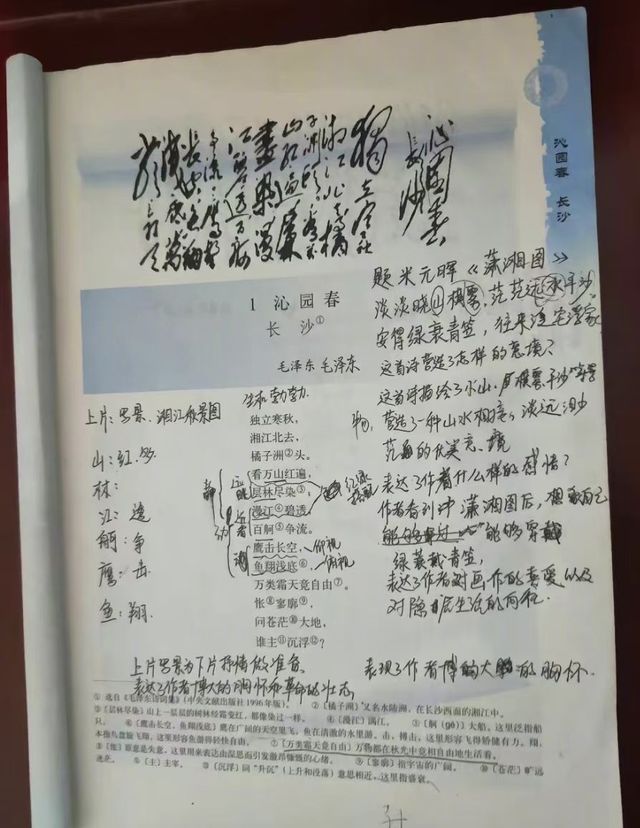 沁园春 长沙
沁园春
长沙
独立寒秋
湘江北去橘
1 沁园春
长 沙①
毛泽东 毛泽东
题米元晖《潇湘图》
淡淡晓山横雾,茫茫远水平沙
安得绿蓑青笠,往来泛宅浮家
这首诗营造了怎样的意境?
营造了一种山水相接,淡远渺
茫的优美意境
表达了作者什么样的感情?
作者看到潇湘图后,想
能够穿戴
绿蓑戴青笠,
表达了作者对画作的喜爱以及
对隐居生活的向往.
表现了作者博大的胸怀.
生机勃勃
上片:写景,湘江秋景图
山:红
林:
江:透
舸:争
鹰:击
鱼:翔
独立寒秋,
湘江北去,
橘子洲②头。
看万山红遍,
层林尽染③;
漫江④碧透,
百舸⑤争流。
鹰击长空, 仰视
鱼翔浅底⑥, 俯视
万类霜天竞自由⑦。
怅⑧寥廓⑨,
问苍茫⑩大地,
谁主⑪沉浮⑫?
静
动
远眺
近看
上片写景为下片抒情做准备.
表达了作者博大的胸怀和革命的壮志
① 选自《毛泽东诗词集》(中央文献出版社1996年版)。 ②〔橘子洲〕又名水陆洲,在长沙西面的湘江中。
③〔层林尽染〕山上一层层的树林经霜变红,都像染过一样。 ④〔漫江〕满江。 ⑤〔舸(gě)〕大船。这里泛指船
只。 ⑥〔鹰击长空,鱼翔浅底〕鹰在广阔的天空里飞,鱼在清澈的水里游。击,搏击。这里形容飞得矫健有力。翔,
本指鸟盘旋飞翔。这里形容鱼游得轻快自由。 ⑦〔万类霜天竞自由〕万物都在秋光中竞相自由地生活着。
⑧〔怅〕原意是失意。这里用来表达由深思而引发激昂慷慨的心绪。 ⑨〔寥廓〕指宇宙的广阔。 ⑩〔苍茫〕旷远
迷茫。 ⑪〔主〕主宰。 ⑫〔沉浮〕同“升沉”(上升和没落)意思相近,这里指盛衰。